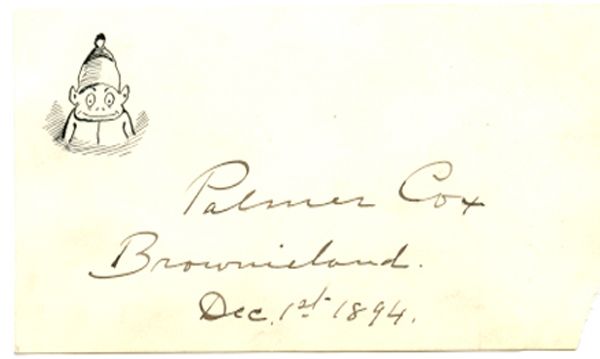 Palmer Cox
Brownieland.
Dec. 1st 1894.